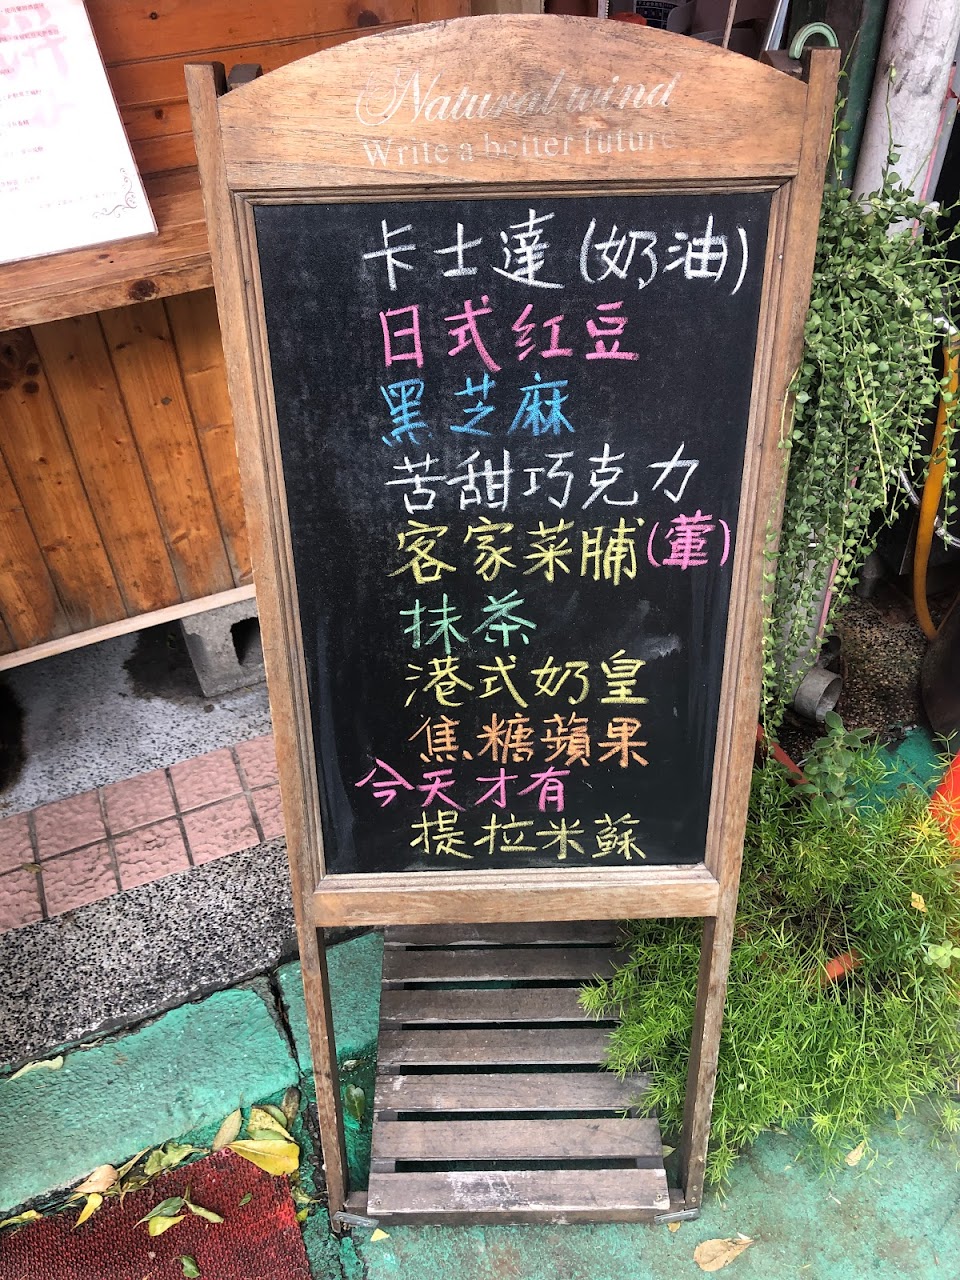 Natural wind
Write a better future
卡士達(奶油)
日式红豆
黑芝麻
苦甜巧克力
客家菜脯(葷)
抹茶
港式奶皇
焦糖蘋果
今天才有
提拉米蘇